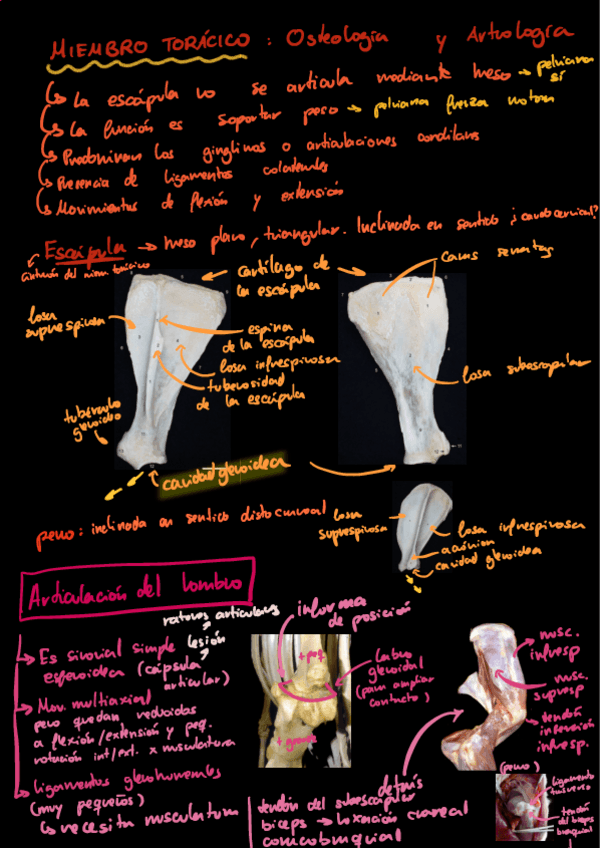 MIEMBRO TORÁCICO : Osteología y Artrología
La escápula no se articula mediante hueso → pelviana sí
La función es soportar peso → pelviana fuerza motora
Predominan los gínglimos o articulaciones condilares
Presencia de ligamentos colaterales
Movimientos de flexión y extensión
Escápula → hueso plano, triangular. Inclinada en sentido ¿caudocervical?
cinturón del miem. torácico
cartílago de la escápula
caras serratas
fosa supraespinosa
espina de la escápula
fosa infraespinosa
tuberosidad de la escápula
fosa subescapular
tubérculo glenoideo
cavidad glenoidea
perro: inclinada en sentido distocraneal
fosa supraespinosa
fosa infraespinosa
acromion
cavidad glenoidea
Articulación del hombro
ratones articulares
lesión
→ Es sinovial simple esferoidea (cápsula articular)
→ Mov. multiaxial
pero quedan reducidos
a flexión/extensión y peq.
rotación int/ext. x musculatura
→ ligamentos glenohumerales
(muy pequeños)
↳ necesita musculatura
informa de posición
+ peq.
+ grande
labro glenoidal
(para ampliar contacto)
musc. infraesp
musc. supraesp
tendón inserción infraesp.
detrás
tendón del subescapular
biceps → luxación craneal
coracobraquial
(perro)
ligamento transverso
tendón del biceps braquial